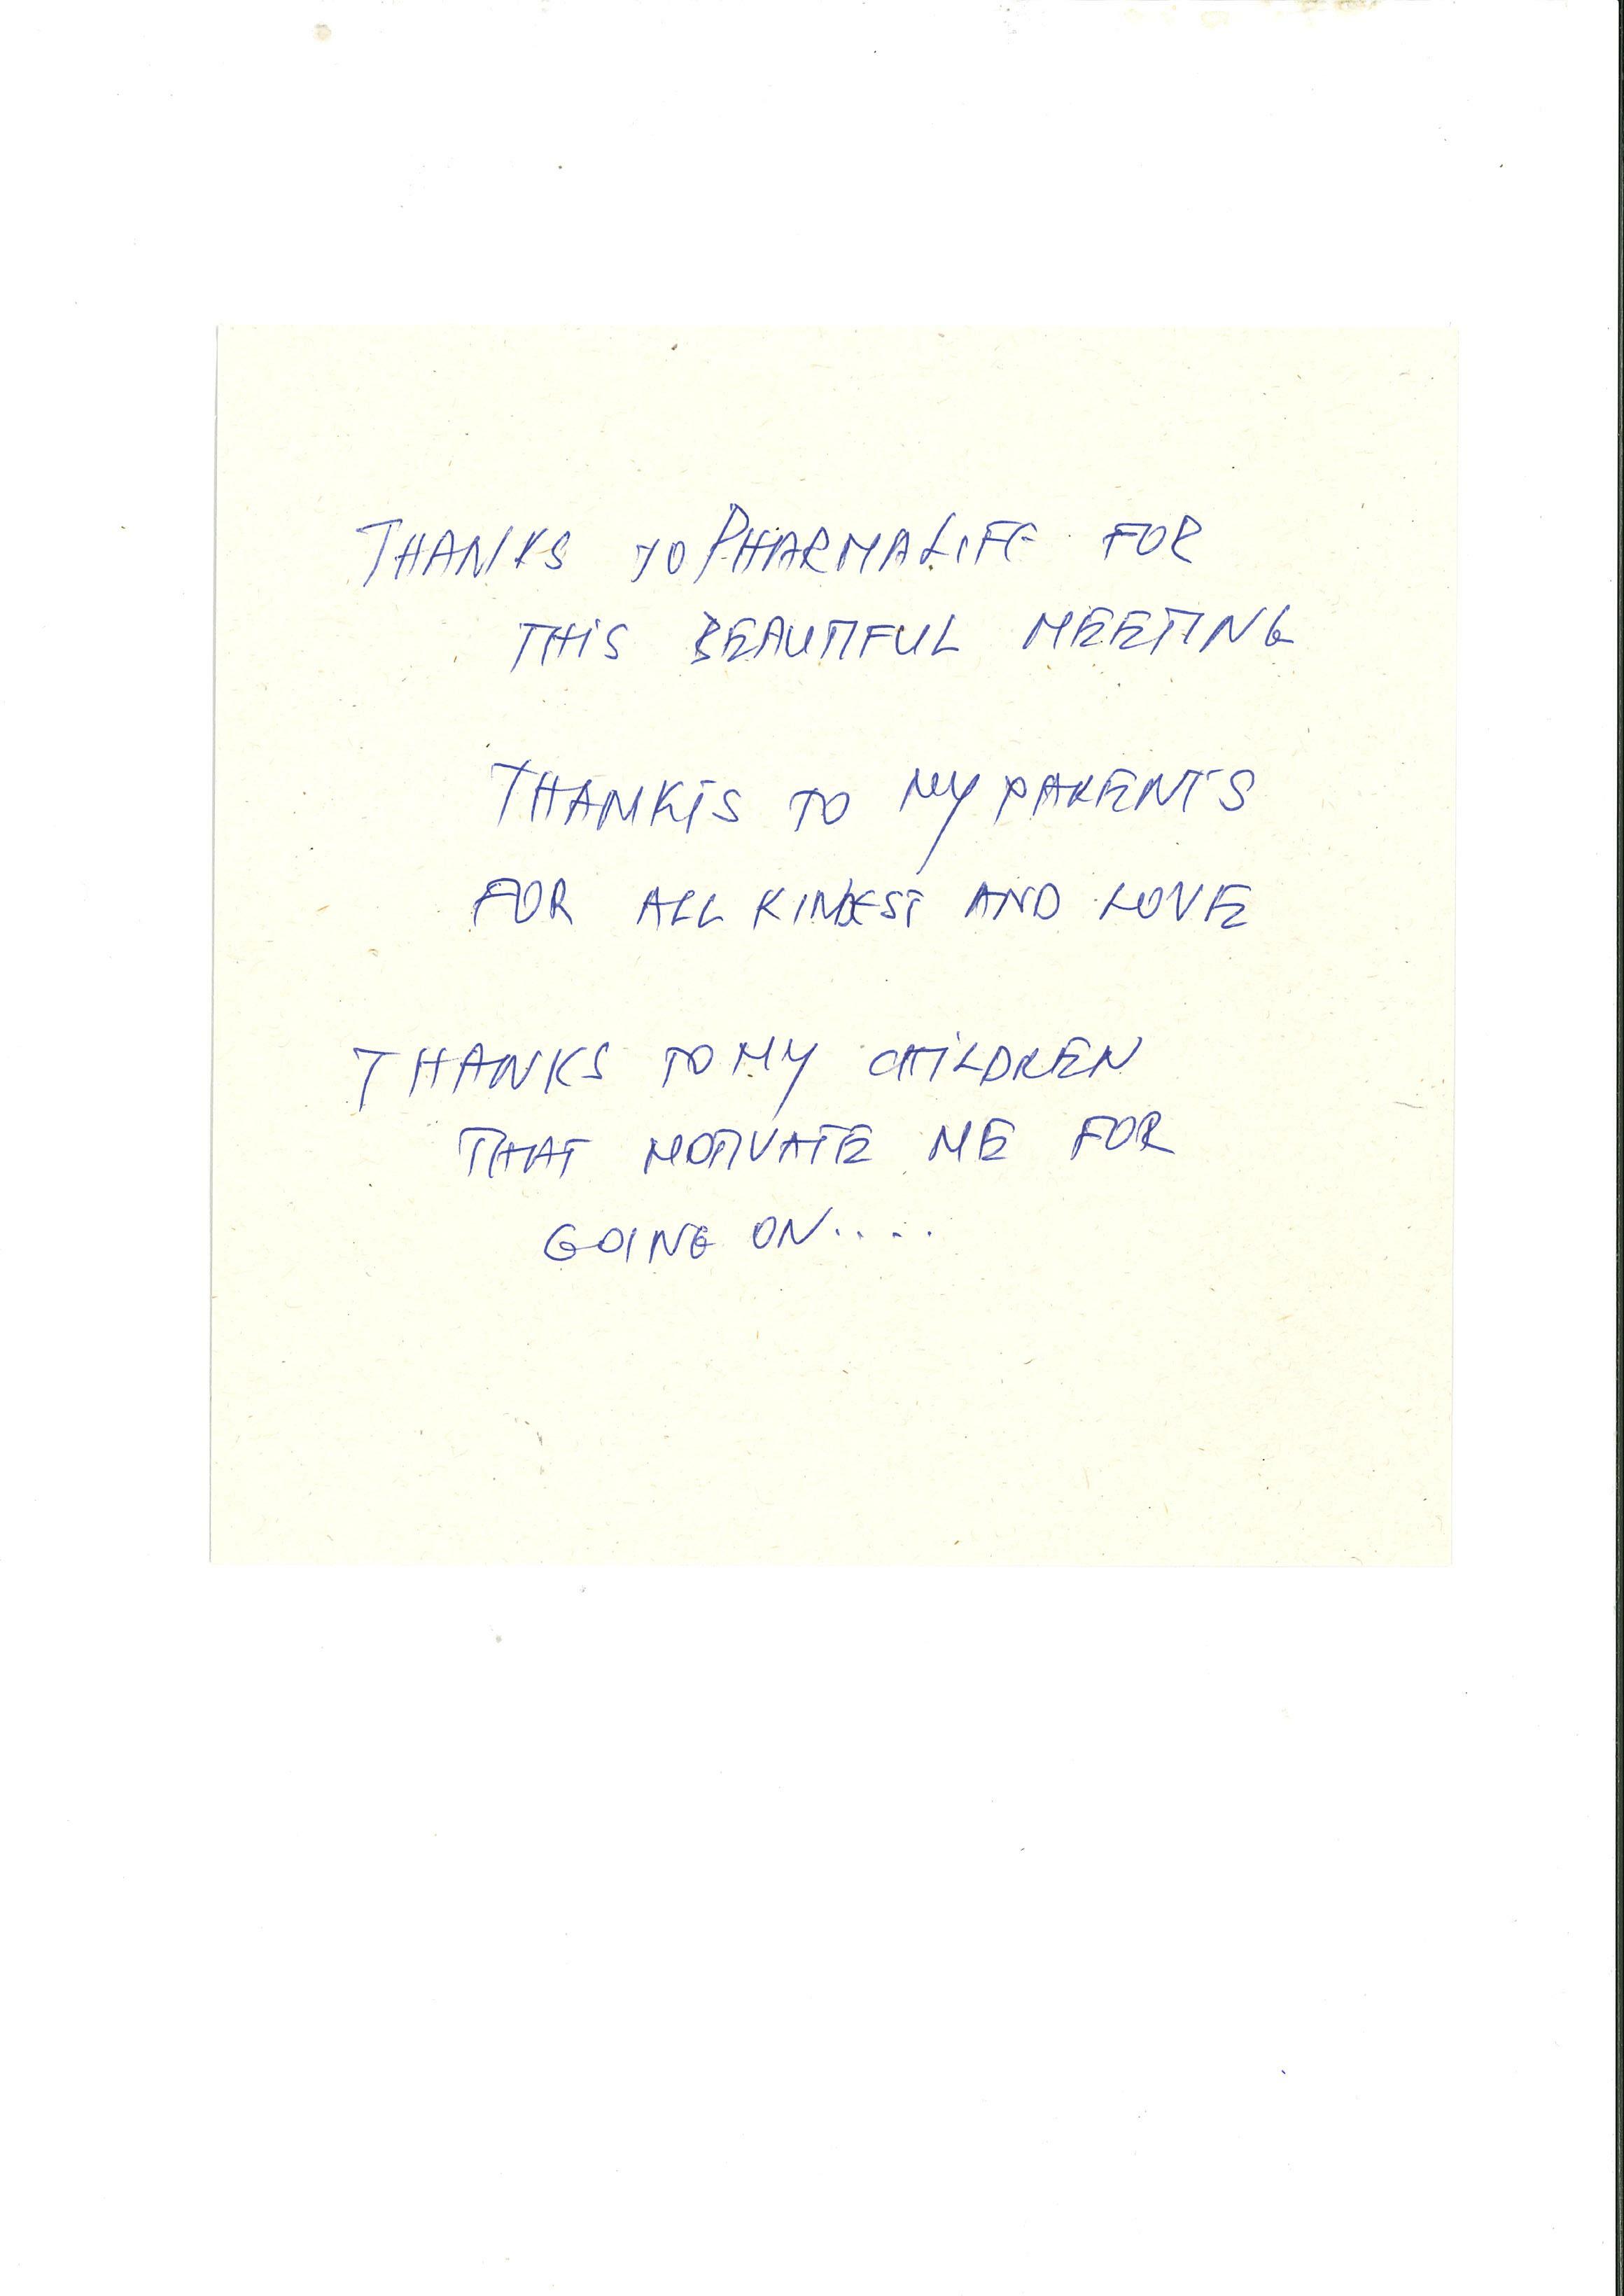 THANKS TO PHARMALIFE FOR
THIS BEAUTIFUL MEETING
THANKS TO MY PARENTS
FOR ALL KINDEST AND LOVE
THANKS TO MY CHILDREN
THAT MOTIVATE ME FOR
GOING ON....